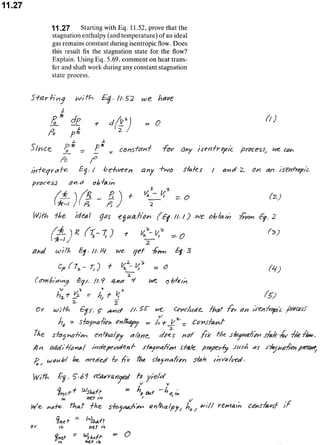 11.27
11.27 Starting with Eq. 11.52, prove that the
stagnation enthalpy (and temperature) of an ideal
gas remains constant during isentropic flow. Does
this result fix the stagnation state for the flow?
Explain. Using Eq. 5.69, comment on heat trans-
fer and shaft work during any constant stagnation
state process.
Starting with Eq. 11.52 we have
p₀^(1/k)/ρ₀ dp/p^(1/k) + d(V²/2) = 0 (1)
Since p₀^(1/k)/ρ₀ = p^(1/k)/ρ = constant for any isentropic process, we can
integrate Eq. 1 between any two states 1 and 2 on an isentropic
process and obtain
(k/k-1)(p₂/ρ₂ - p₁/ρ₁) + V₂² - V₁²/2 = 0 (2)
With the ideal gas equation (Eq. 11.1) we obtain from Eq. 2
(k/k-1) R (T₂-T₁) + V₂² - V₁²/2 = 0 (3)
and with Eq. 11.14 we get from Eq. 3
cp (T₂-T₁) + V₂² - V₁²/2 = 0 (4)
Combining Eqs. 11.9 and 4 we obtain
h₂ + V₂²/2 = h₁ + V₁²/2 (5)
Or with Eqs. 5 and 11.55 we conclude that for an isentropic process
h₀ = stagnation enthalpy = h + V²/2 = constant
The stagnation enthalpy alone does not fix the stagnation state for the flow.
An additional independent stagnation state property such as stagnation pressure,
p₀, would be needed to fix the stagnation state involved.
With Eq. 5.69 rearranged to yield
q net in + w shaft net in = h₀,out - h₀,in
We note that the stagnation enthalpy, h₀, will remain constant if
q net in = w shaft net in
or
q net in = w shaft net in = 0